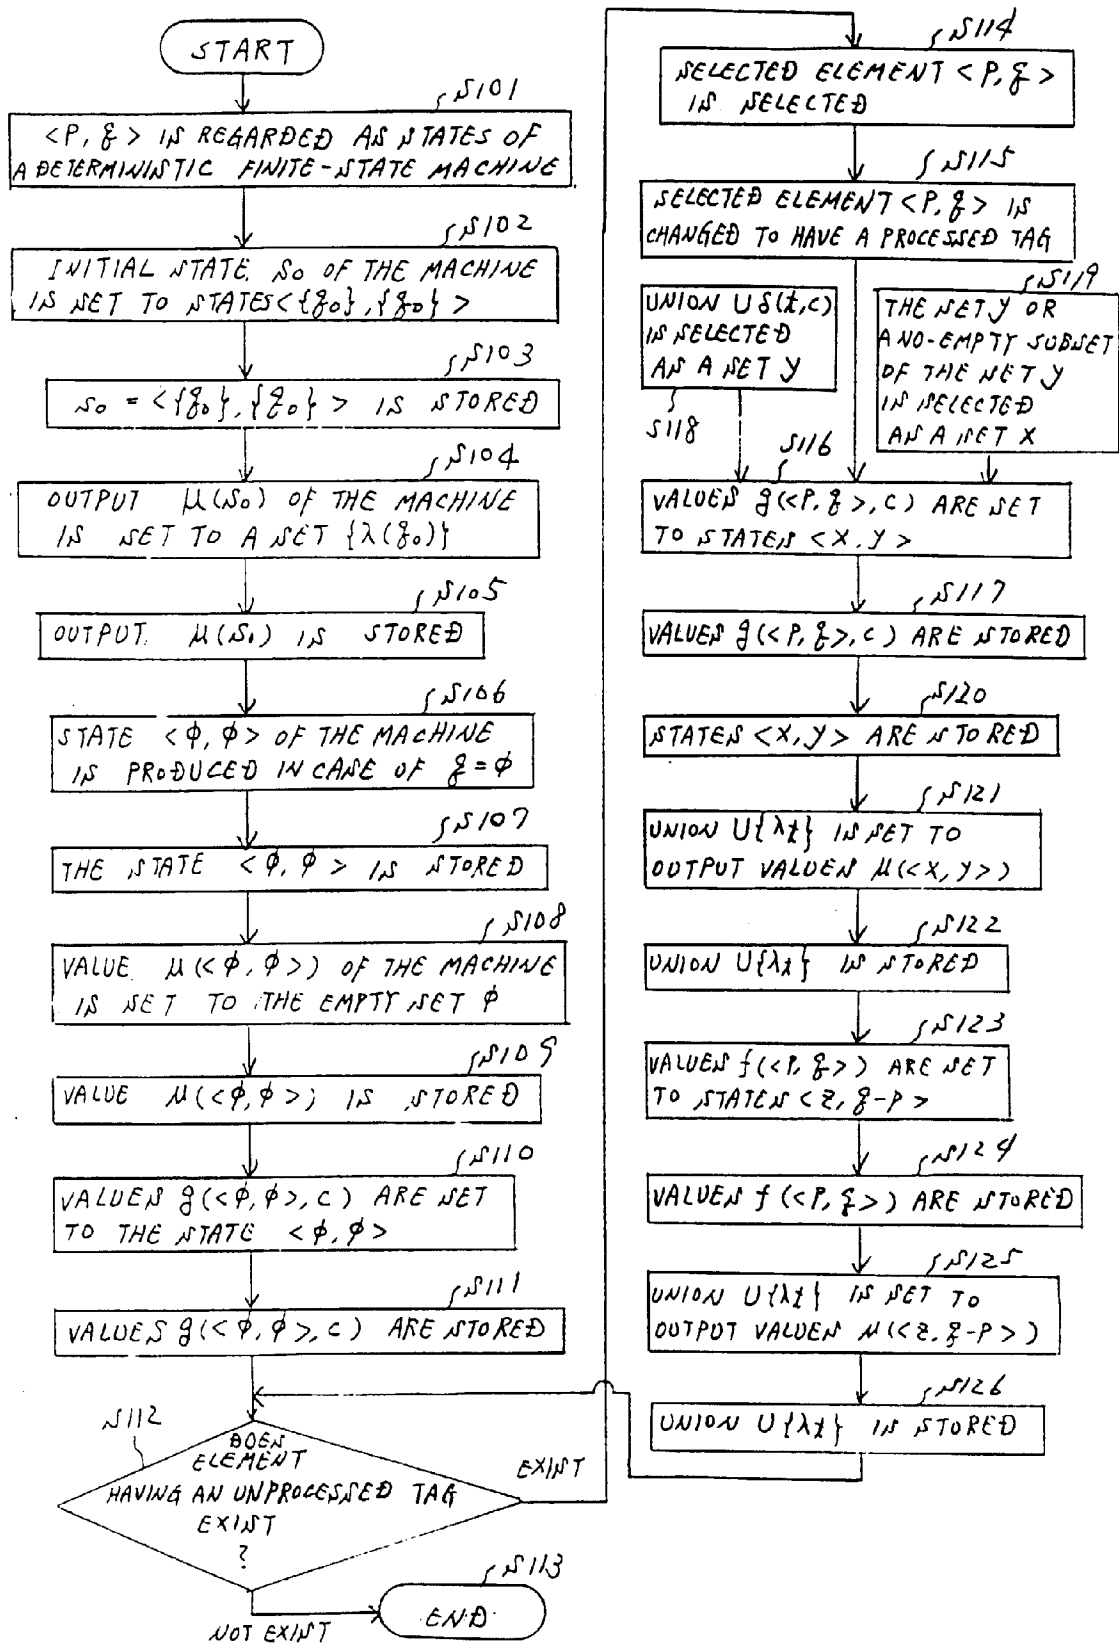 START
S101
<P, q> IS REGARDED AS STATES OF
A DETERMINISTIC FINITE-STATE MACHINE
S102
INITIAL STATE S0 OF THE MACHINE
IS SET TO STATES <{q0}, {q0}>
S103
S0 = <{q0}, {q0}> IS STORED
S104
OUTPUT μ(S0) OF THE MACHINE
IS SET TO A SET {λ(q0)}
S105
OUTPUT μ(S0) IS STORED
S106
STATE <φ, φ> OF THE MACHINE
IS PRODUCED IN CASE OF q=φ
S107
THE STATE <φ, φ> IS STORED
S108
VALUE μ(<φ, φ>) OF THE MACHINE
IS SET TO THE EMPTY SET φ
S109
VALUE μ(<φ, φ>) IS STORED
S110
VALUES g(<φ, φ>, C) ARE SET
TO THE STATE <φ, φ>
S111
VALUES g(<φ, φ>, C) ARE STORED
S112
DOES
ELEMENT
HAVING AN UNPROCESSED TAG
EXIST
?
EXIST
NOT EXIST
S113
END
S114
SELECTED ELEMENT <P, q>
IS SELECTED
S115
SELECTED ELEMENT <P, q> IS
CHANGED TO HAVE A PROCESSED TAG
UNION U δ(t, c)
IS SELECTED
AS A SET Y
S118
S119
THE SET Y OR
A NO-EMPTY SUBSET
OF THE SET Y
IS SELECTED
AS A SET X
S116
VALUES g(<P, q>, C) ARE SET
TO STATES <X, Y>
S117
VALUES g(<P, q>, C) ARE STORED
S120
STATES <X, Y> ARE STORED
S121
UNION U{λt} IS SET TO
OUTPUT VALUES μ(<X, Y>)
S122
UNION U{λt} IS STORED
S123
VALUES f(<P, q>) ARE SET
TO STATES <Z, q-P>
S124
VALUES f(<P, q>) ARE STORED
S125
UNION U{λt} IS SET TO
OUTPUT VALUES μ(<Z, q-P>)
S126
UNION U{λt} IS STORED